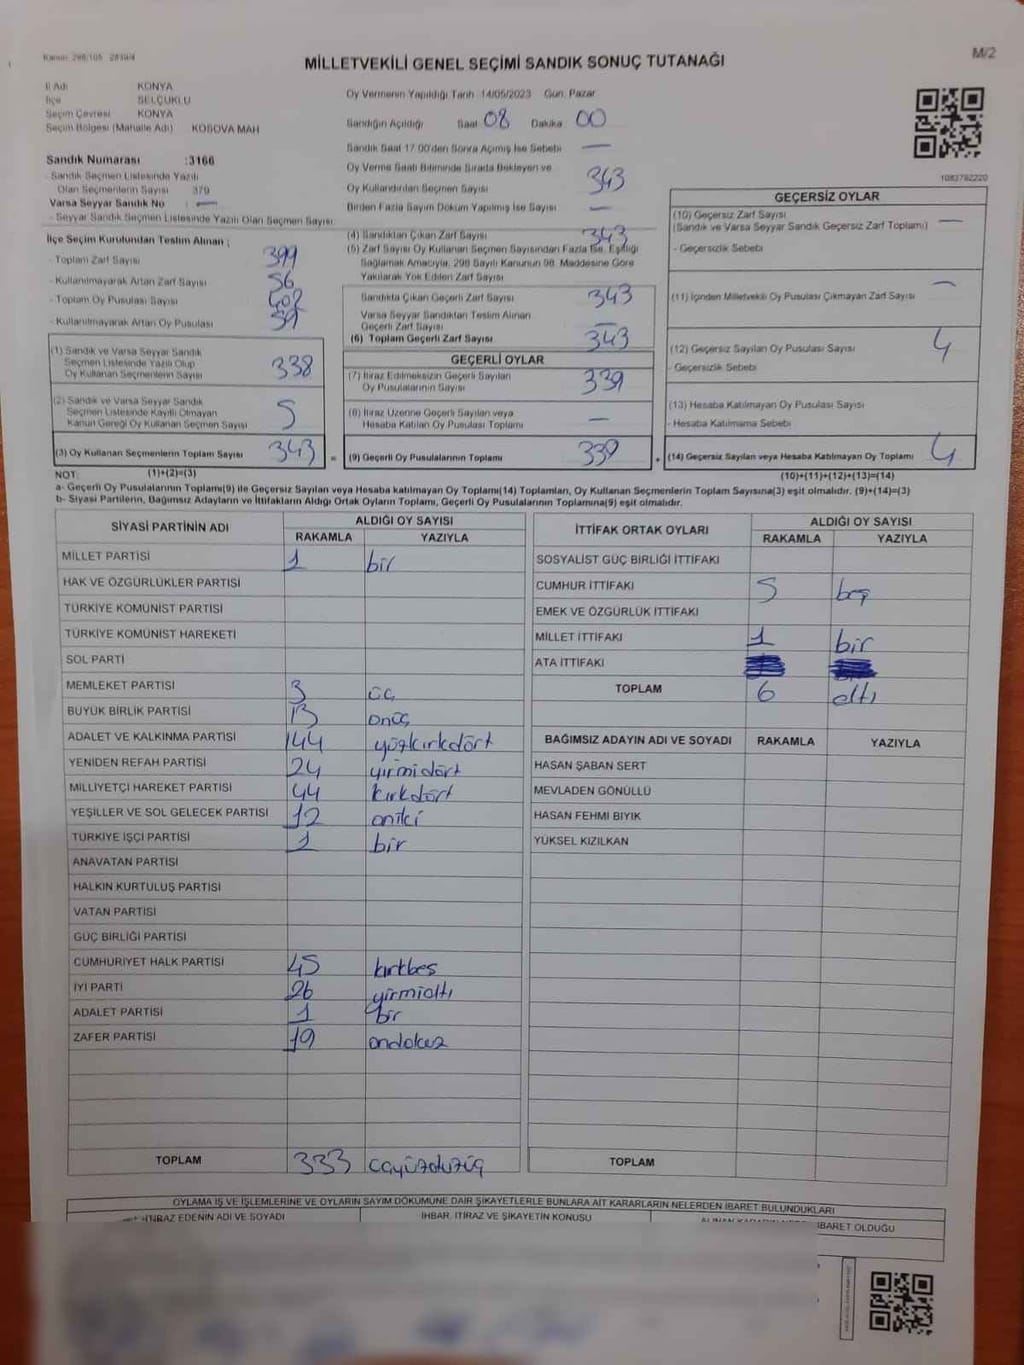 Kanun: 298/105 2839/4
M/2
MİLLETVEKİLİ GENEL SEÇİMİ SANDIK SONUÇ TUTANAĞI
İl Adı KONYA
İlçe SELÇUKLU
Seçim Çevresi KONYA
Seçim Bölgesi (Mahalle Adı) KOSOVA MAH
Sandık Numarası :3166
- Sandık Seçmen Listesinde Yazılı
Olan Seçmenlerin Sayısı 379
Varsa Seyyar Sandık No —
- Seyyar Sandık Seçmen Listesinde Yazılı Olan Seçmen Sayısı
İlçe Seçim Kurulundan Teslim Alınan ;
- Toplam Zarf Sayısı 399
- Kullanılmayarak Artan Zarf Sayısı 56
- Toplam Oy Pusulası Sayısı
- Kullanılmayarak Artan Oy Pusulası 59
(1) Sandık ve Varsa Seyyar Sandık
Seçmen Listesinde Yazılı Olup
Oy Kullanan Seçmenlerin Sayısı 338
(2) Sandık ve Varsa Seyyar Sandık
Seçmen Listesinde Kayıtlı Olmayan
Kanun Gereği Oy Kullanan Seçmen Sayısı 5
(3) Oy Kullanan Seçmenlerin Toplam Sayısı 343 =
Oy Vermenin Yapıldığı Tarih 14/05/2023 Gün: Pazar
Sandığın Açıldığı Saat 08 Dakika 00
Sandık Saat 17:00'den Sonra Açılmış İse Sebebi —
Oy Verme Saati Bitiminde Sırada Bekleyen ve
Oy Kullandırılan Seçmen Sayısı 343
Birden Fazla Sayım Döküm Yapılmış İse Sayısı —
(4) Sandıktan Çıkan Zarf Sayısı 343
(5) Zarf Sayısı Oy Kullanan Seçmen Sayısından Fazla İse, Eşitliği
Sağlamak Amacıyla, 298 Sayılı Kanunun 98. Maddesine Göre
Yakılarak Yok Edilen Zarf Sayısı
Sandıkta Çıkan Geçerli Zarf Sayısı 343
Varsa Seyyar Sandıktan Teslim Alınan
Geçerli Zarf Sayısı —
(6) Toplam Geçerli Zarf Sayısı 343
GEÇERLİ OYLAR
(7) İtiraz Edilmeksizin Geçerli Sayılan
Oy Pusulalarının Sayısı 339
(8) İtiraz Üzerine Geçerli Sayılan veya
Hesaba Katılan Oy Pusulaları Toplamı —
(9) Geçerli Oy Pusulalarının Toplamı 339 +
1083782220
GEÇERSİZ OYLAR
(10) Geçersiz Zarf Sayısı
(Sandık ve Varsa Seyyar Sandık Geçersiz Zarf Toplamı) —
- Geçersizlik Sebebi
(11) İçinden Milletvekili Oy Pusulası Çıkmayan Zarf Sayısı —
(12) Geçersiz Sayılan Oy Pusulası Sayısı 4
- Geçersizlik Sebebi
(13) Hesaba Katılmayan Oy Pusulası Sayısı
- Hesaba Katılmama Sebebi
(14) Geçersiz Sayılan veya Hesaba Katılmayan Oy Toplamı 4
NOT: (1)+(2)=(3) (10)+(11)+(12)+(13)=(14)
a- Geçerli Oy Pusulalarının Toplamı(9) ile Geçersiz Sayılan veya Hesaba katılmayan Oy Toplamı(14) Toplamları, Oy Kullanan Seçmenlerin Toplam Sayısına(3) eşit olmalıdır. (9)+(14)=(3)
b- Siyasi Partilerin, Bağımsız Adayların ve İttifakların Aldığı Ortak Oyların Toplamı, Geçerli Oy Pusulalarının Toplamına(9) eşit olmalıdır.
SİYASİ PARTİNİN ADI ALDIĞI OY SAYISI
RAKAMLA YAZIYLA
MİLLET PARTİSİ 1 bir
HAK VE ÖZGÜRLÜKLER PARTİSİ
TÜRKİYE KOMÜNİST PARTİSİ
TÜRKİYE KOMÜNİST HAREKETİ
SOL PARTİ
MEMLEKET PARTİSİ 3 üç
BÜYÜK BİRLİK PARTİSİ 13 onüç
ADALET VE KALKINMA PARTİSİ 144 yüzkırkdört
YENİDEN REFAH PARTİSİ 24 yirmidört
MİLLİYETÇİ HAREKET PARTİSİ 44 kırkdört
YEŞİLLER VE SOL GELECEK PARTİSİ 12 oniki
TÜRKİYE İŞÇİ PARTİSİ 1 bir
ANAVATAN PARTİSİ
HALKIN KURTULUŞ PARTİSİ
VATAN PARTİSİ
GÜÇ BİRLİĞİ PARTİSİ
CUMHURİYET HALK PARTİSİ 45 kırkbeş
İYİ PARTİ 26 yirmialtı
ADALET PARTİSİ 1 bir
ZAFER PARTİSİ 19 ondokuz
TOPLAM 333
İTTİFAK ORTAK OYLARI ALDIĞI OY SAYISI
RAKAMLA YAZIYLA
SOSYALİST GÜÇ BİRLİĞİ İTTİFAKI
CUMHUR İTTİFAKI 5 beş
EMEK VE ÖZGÜRLÜK İTTİFAKI
MİLLET İTTİFAKI 1 bir
ATA İTTİFAKI
TOPLAM 6 altı
BAĞIMSIZ ADAYIN ADI VE SOYADI RAKAMLA YAZIYLA
HASAN ŞABAN SERT
MEVLADEN GÖNÜLLÜ
HASAN FEHMİ BIYIK
YÜKSEL KIZILKAN
TOPLAM
OYLAMA İŞ VE İŞLEMLERİNE VE OYLARIN SAYIM DÖKÜMÜNE DAİR ŞİKAYETLERLE BUNLARA AİT KARARLARIN NELERDEN İBARET BULUNDUKLARI
İTİRAZ EDENİN ADI VE SOYADI İHBAR, İTİRAZ VE ŞİKAYETİN KONUSU İBARET OLDUĞU